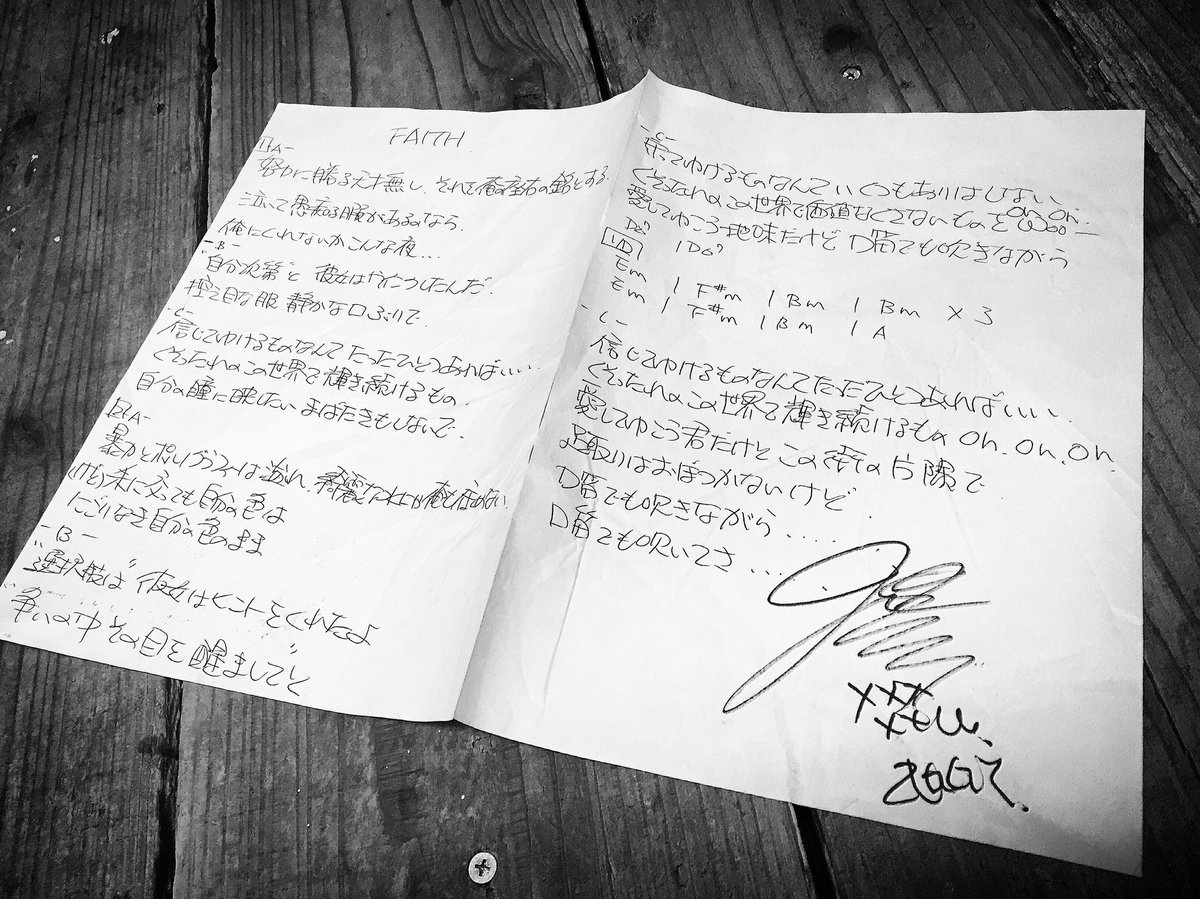 FAITH
A-
努力に勝る天才無し、それを俺の座右の銘とする
泣いて愚痴る暇があるのなら、
俺にくれないかこんな夜...
-B-
"自分次第"と 彼女は
控え目な服 静かな口ぶりで、
-C-
信じてゆけるものなんて たったひとつあればいい...
くそったれのこの世界で輝き続けるもの、
自分の瞳に映したい まばたきもしないで、
A-
暴力とポルノグラフィは溢れ、
(けど)朱に交っても自分の色は
にごりなき自分の色のまま
-B-
"選択肢は" 彼女はヒントをくれたよ
"争いの中 その目を醒まして"と
-C-
乗ってゆけるものなんていくつもありはしない、
くそったれのこの世界で価値もくそもないものを Woo-
Oh, Oh.
愛してゆこう 地味だけど 口笛でも吹きながら
Em | F#m | Bm | Bm × 3
Em | F#m | Bm | A
-C-
信じてゆけるものなんてたったひとつあればいい、
くそったれのこの世界で輝き続けるもの Oh, Oh, Oh,
愛してゆこう君だけを この街の片隅で、
足取りはおぼつかないけど、
口笛でも吹きながら.....
口笛でも吹いてさ...